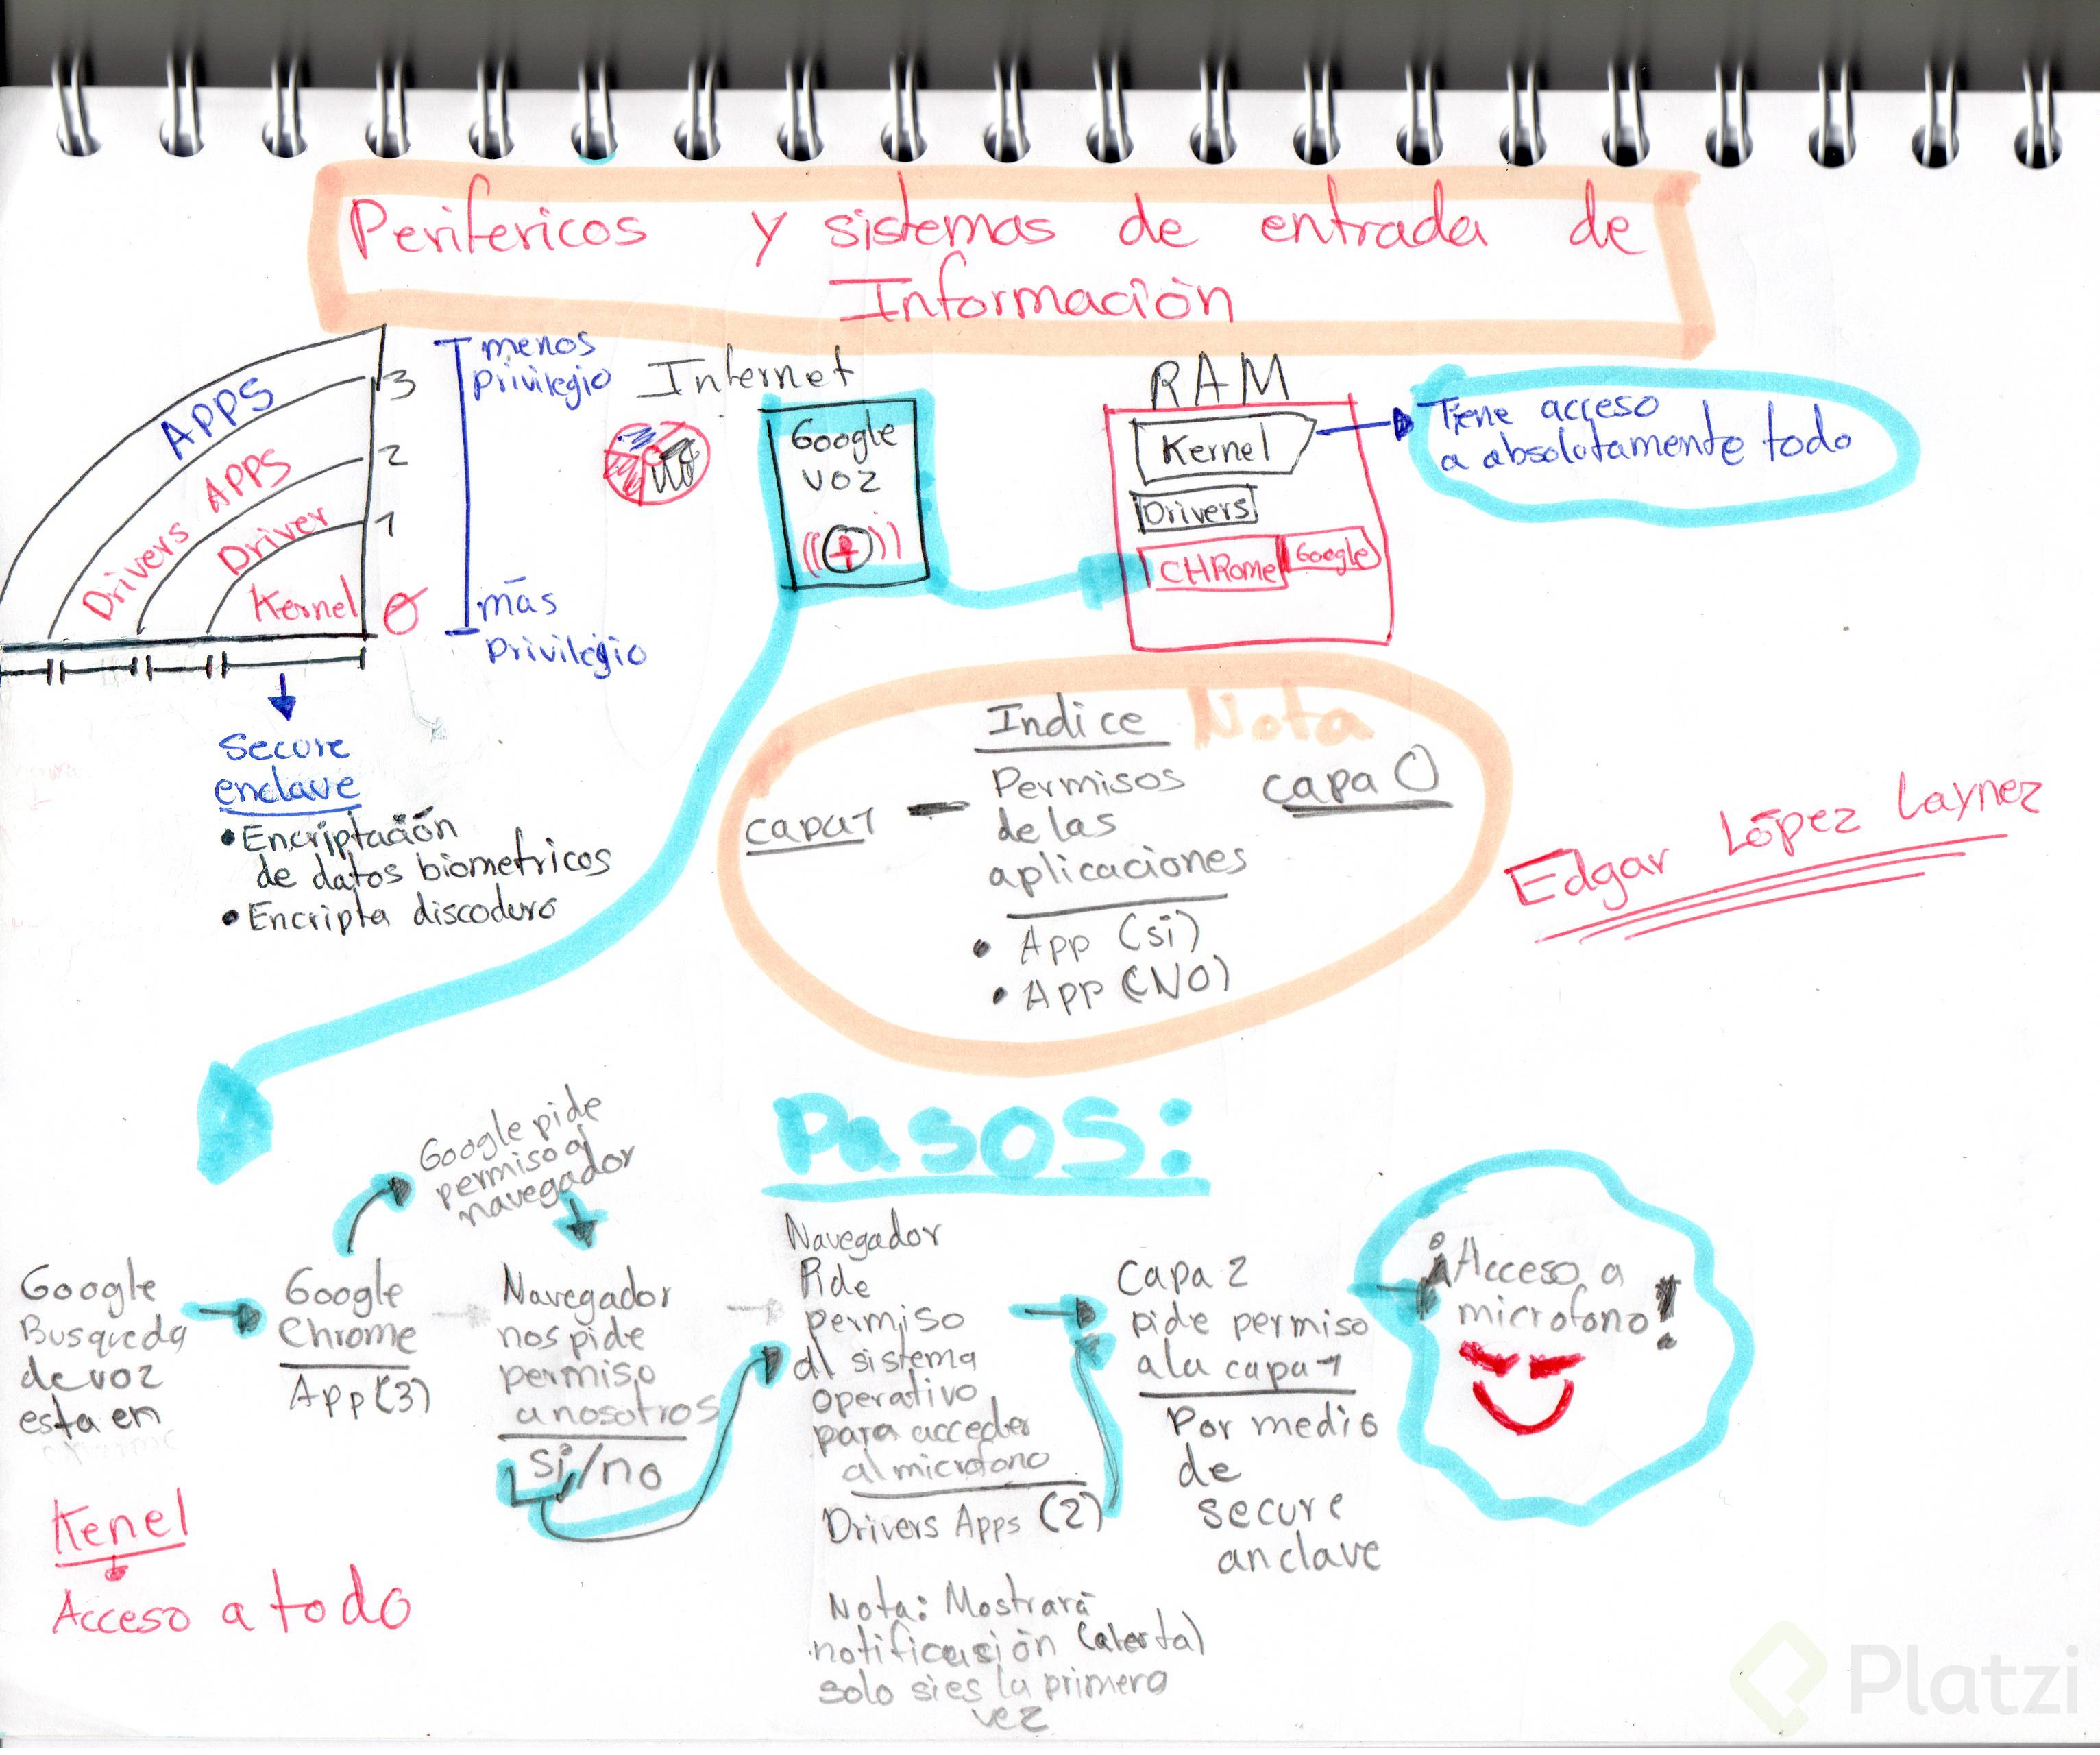 Perifericos y sistemas de entrada de
Información
APPS
3
Drivers APPS
2
Driver
1
Kernel
0
menos
privilegio
más
privilegio
Secure
enclave
• Encriptación
de datos biometricos
• Encripta discoduro
Internet
Google
voz
RAM
Kernel
Drivers
CHRome
Google
Tiene acceso
a absolutamente todo
Indice
Nota
Permisos
de las
aplicaciones
capa 1
capa 0
• App (si)
• App (NO)
Edgar López Laynez
Pasos:
Google
Busqueda
de voz
esta en
Google
Chrome
App (3)
Google pide
permiso al
navegador
Navegador
nos pide
permiso
a nosotros
Si/no
Navegador
Pide
permiso
al sistema
operativo
para acceder
al microfono
Drivers Apps (2)
Nota: Mostrará
notificasión (alerta)
solo si es la primera
vez
Capa 2
pide permiso
a la capa 1
Por medio
de
secure
anclave
¡Acceso a
microfono!
Kenel
Acceso a todo
Platzi